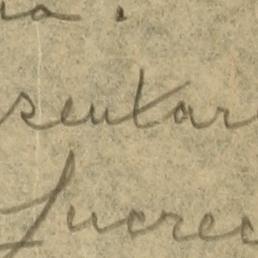 a.
sentar
Lucrec